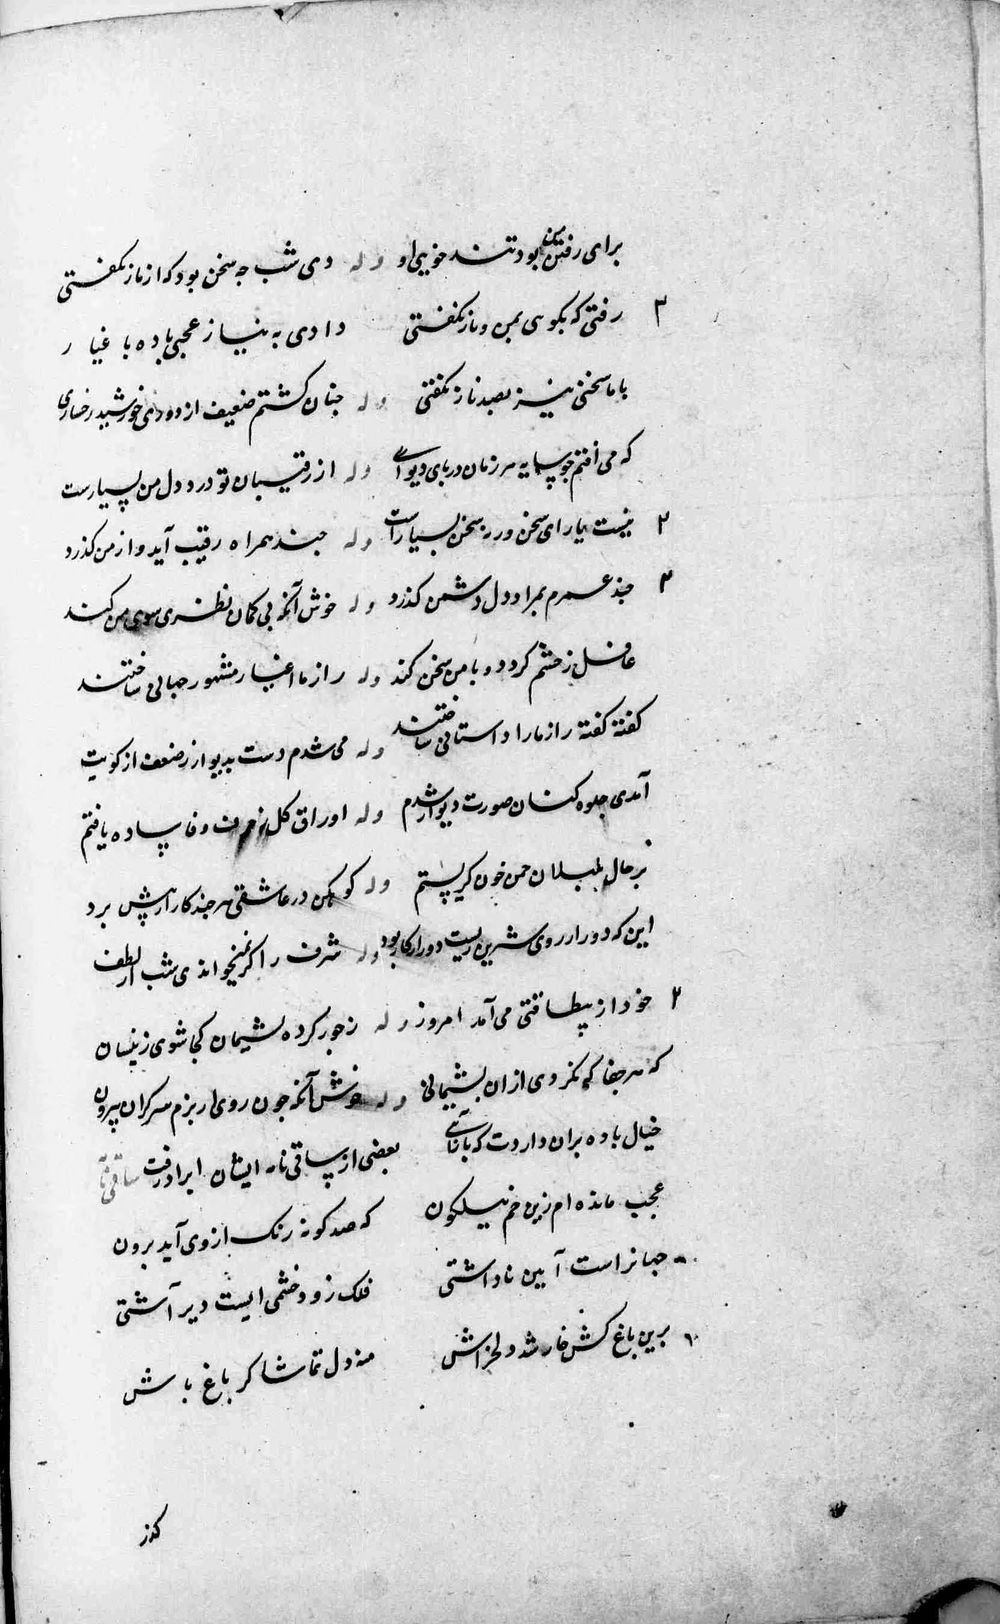 برای رفتن من بود تند خویی او وله دی شب چه سخن بود که از ناز نگفتی
۳ رفتی که بگوی بمن و باز نگفتی دادی به نیاز عجبی باده باغیار
با ما سخنی نیز بصد ناز نگفتی وله چنان گشتم ضعیف از دوری خورشید رخساری
که می افتم چو سایه هر زمان در پای دیواری وله از رقیبان تو در دل من بسیارست
۲ نیست یارای سخن ورنه سخن بسیارست وله چند همراه رقیب آید و از من گذرد
۳ چند عمرم بمراد دل دشمن گذرد وله خوش آنکه بی گمان نظری سوی من کند
غافل ز خشم گردد و با من سخن کند وله راز ما اغیار مشهور جهانی ساختند
گفته گفته راز ما را داستانی ساختند وله می شدم دست بدیوار ز ضعف از کویت
آمدی جلوه کنان صورت دیوار شدم وله اوراق گل ز حرف وفا ساده یافتم
بر حال بلبلان چمن خون گریستم وله کوهکن در عاشقی هر چند کار از پیش برد
این که دور از روی شیرین زیست دور از کار بود وله شرف را گر نمیخواندی شب از لطف
۲ خود از بیطاقتی می آمد امروز وله ز جور کرده پشیمان کجا شوی زینسان
که هر جفا که نکردی ازان پشیمانی وله خوش آنکه چون روی از بزم سرگران بیرون
خیال باده بران داردت که باز آئی بعضی از ساقی نامه ایشان ایراد رفت ساقی نامه
عجب مانده ام زین خم نیلگون که صد گونه رنگ از وی آید برون
جهانراست آیین ناداشتی فلک زود خشمی است دیر آشتی
برین باغ کش خار شد دلخراش منه دل تماشاگر باغ باش
گذر